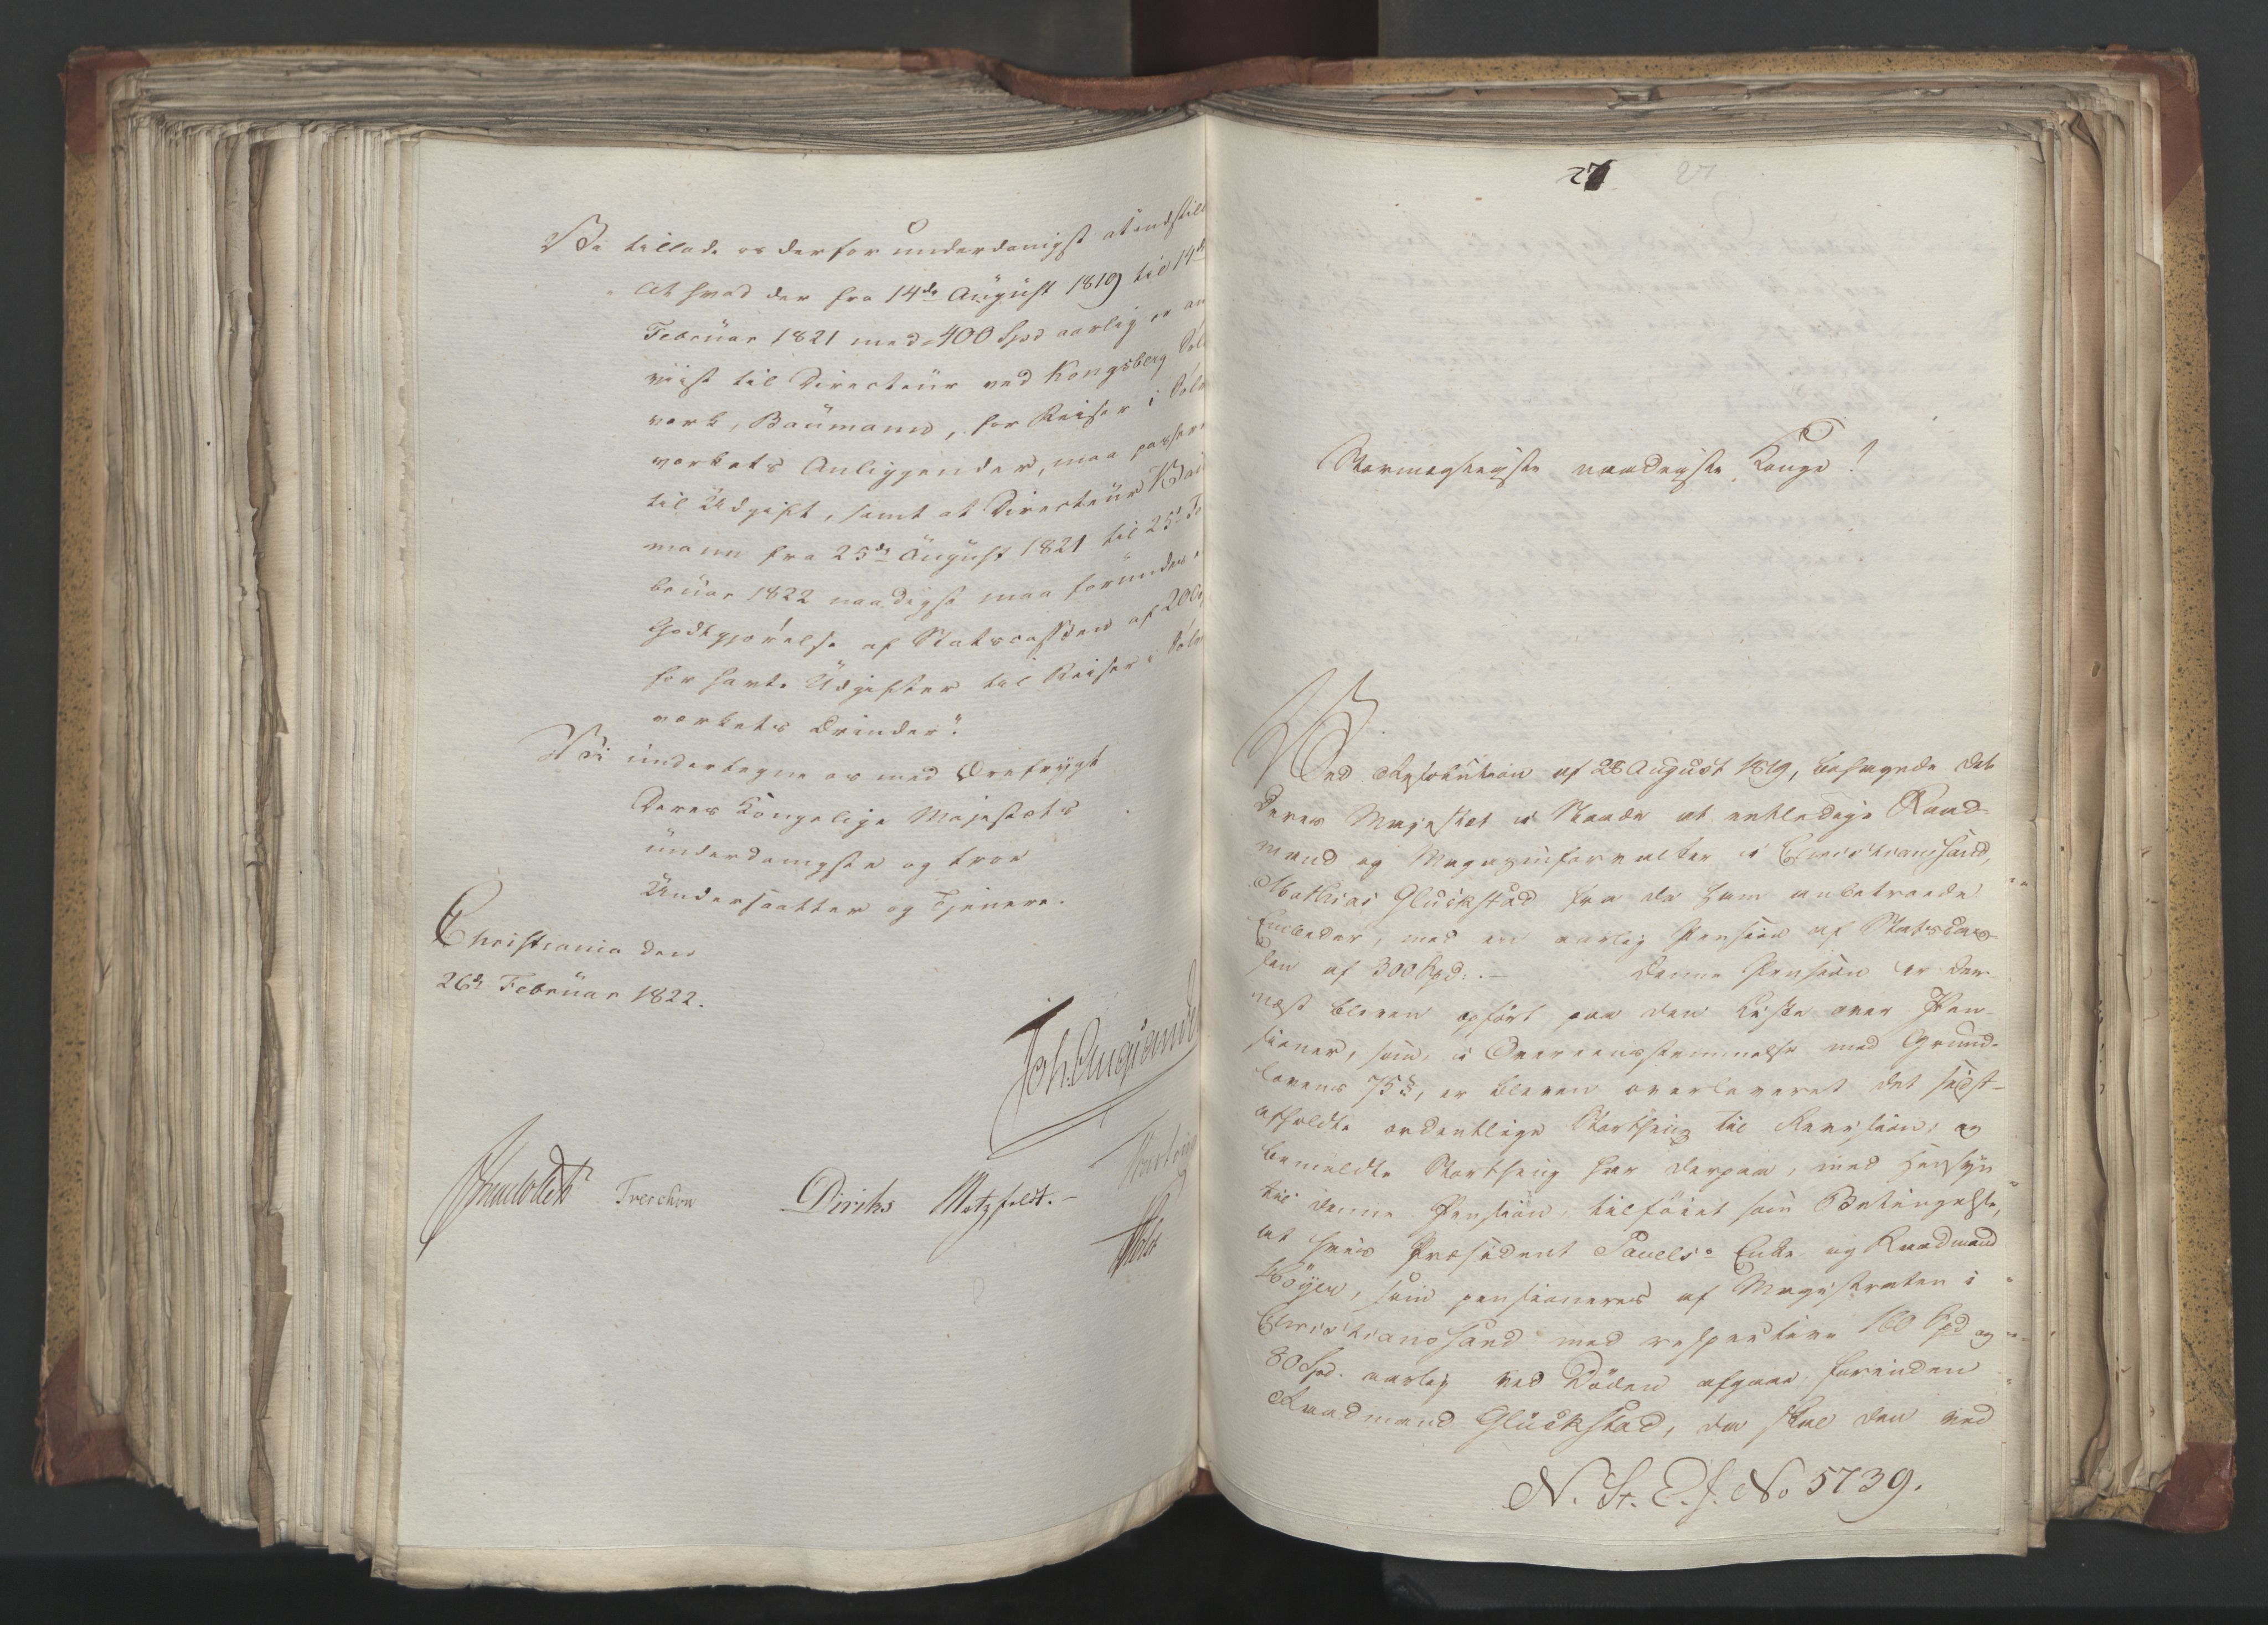 Vi tillade os derfor underdanigst at indstille
"At hvad der fra 14de August 1819 til 14de
Februar 1821 med 400 Spd aarlig er an
viist til Directeur ved Kongsberg Søl
værk, Baumann, for Reiser i Sølv
værkets Anliggender, maa passere
til Udgift, samt at Directeur Bau
mann fra 25de August 1821 til 25de Fe
bruar 1822 naadigst maa forundes
Godtgjørelse af Statscassen af 200
for havte Udgifter til Reiser i Sølv
værkets Ærinder".
Vi undertegne os med Ærefrygt
Deres Kongelige Majestæts
underdanigste og troe
Undersaatter og Tjenere.
Christiania den
26de Februar 1822.
Treschow Diriks Motzfeldt.
27 27
Stormægtigste naadigste Konge!
Ved Resolution af 28 August 1819, behagede det
Deres Majestæt i Naade at entledige Raad-
mand og Magasinforvalter i Christiansand,
Mathias Glückstad fra de ham anbetroede
Embeder, med en aarlig Pension af Statscas-
sen af 300 Spd:.- Denne Pension er der-
næst bleven opført paa den Liste over Pen-
sioner, som, i Overeensstemmelse med Grund-
lovens 75 §, er bleven overleveret det sidst-
afholdte ordentlige Storthing til Revision, og
bemeldte Storthing har derpaa, med Hensyn
til denne Pension, tilføiet som Betingelse,
at hvis Præsident Pauels' Enke og Raadmand
Høyer, som pensioneres af Magistraten i
Christiansand med respective 160 Spd og
80 Spd. aarlig ved Døden afgaae forinden
Raadmand Glückstad, da skal den ved
N. St. E. J. No 5739.